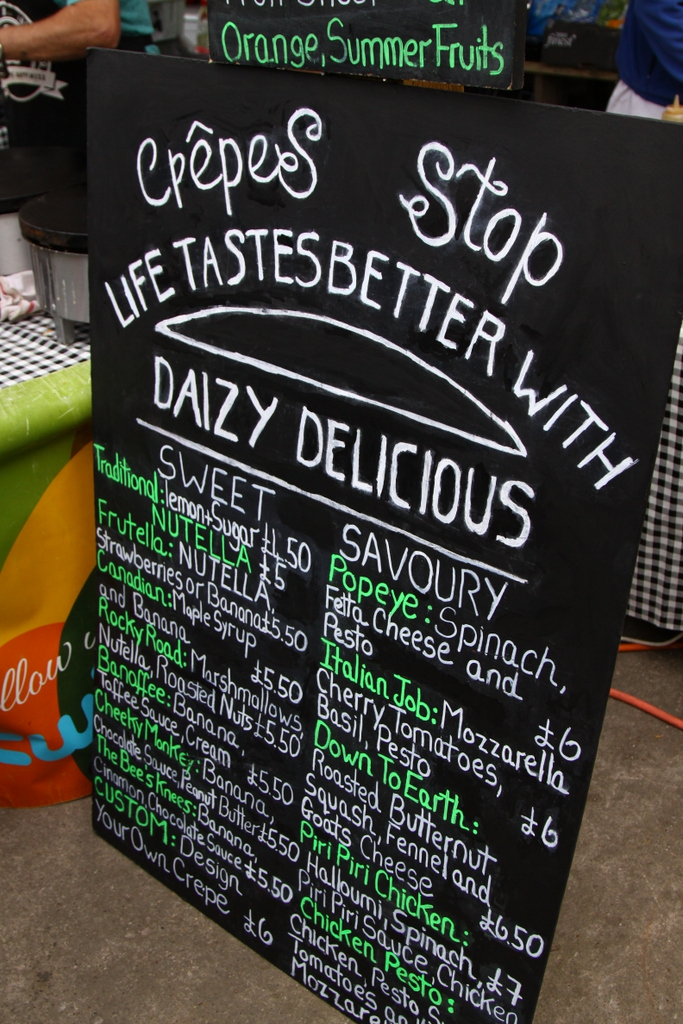 Orange, Summer Fruits
Crêpes Stop
LIFE TASTES BETTER WITH
DAIZY DELICIOUS
SWEET
Traditional: lemon+Sugar £4.50
NUTELLA £5
Frutella: NUTELLA,
Strawberries or Banana £5.50
Canadian: Maple Syrup
and Banana £5.50
Rocky Road: Marshmallows
Nutella, Roasted Nuts £5.50
Banoffee: Banana,
Toffee Sauce, Cream £5.50
Cheeky Monkey: Banana,
Chocolate Sauce, Peanut Butter £5.50
The Bee's Knees: Banana,
Cinamon, Chocolate Sauce £5.50
CUSTOM: Design
Your Own Crepe £6
SAVOURY
Popeye: Spinach,
Fetta Cheese and
Pesto £6
Italian Job: Mozzarella
Cherry Tomatoes,
Basil, Pesto £6
Down To Earth:
Roasted Butternut
Squash, Fennel and
Goats Cheese £6.50
Piri Piri Chicken:
Halloumi, Spinach,
Piri Piri Sauce, Chicken £7
Chicken Pesto:
Chicken, Pesto,
Tomatoes